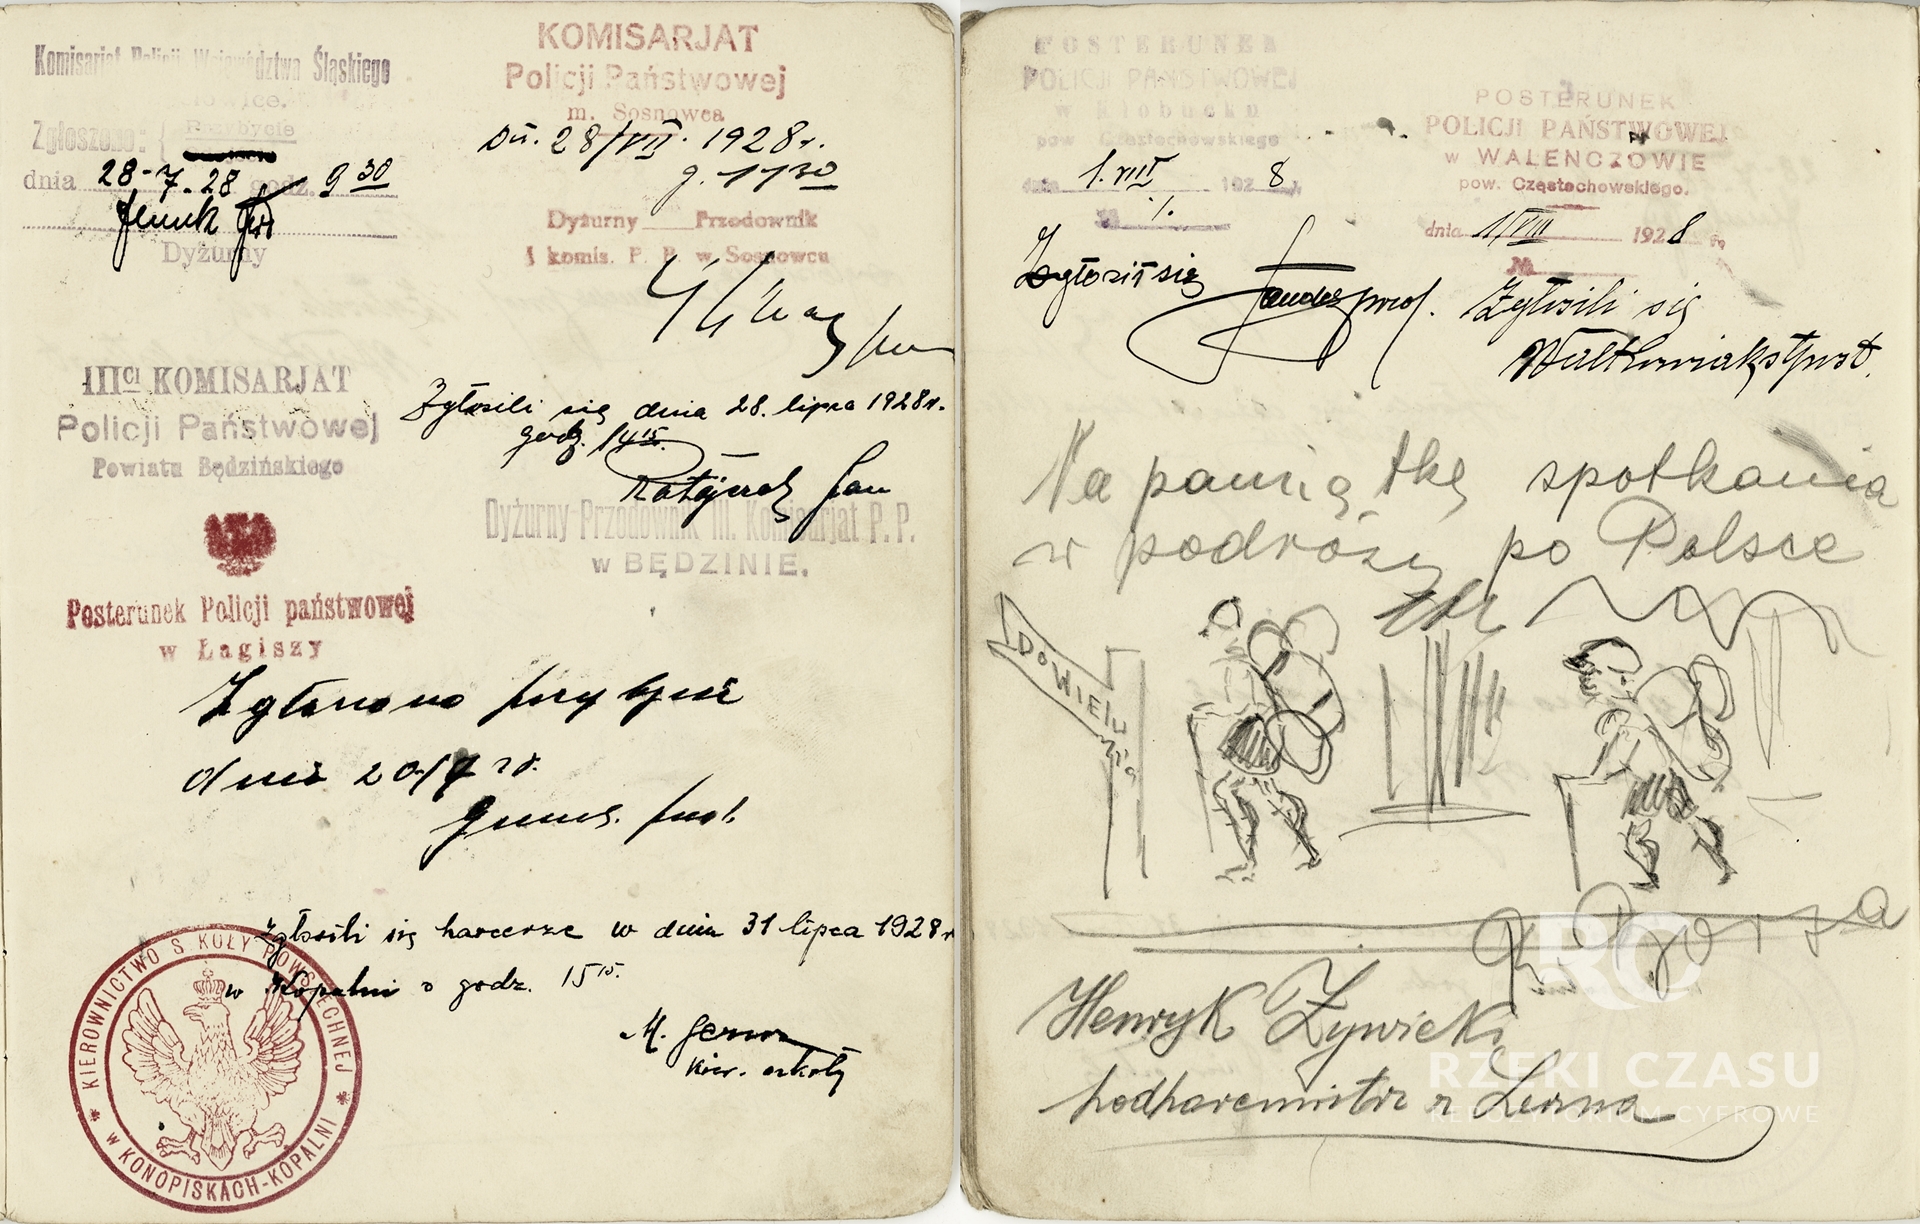 Komisarjat Policji Województwa Śląskiego
Zgłoszono: { Przybycie
dnia 28-7.28 godz. 9 30
Dyżurny
KOMISARJAT
Policji Państwowej
m. Sosnowca
Dn. 28/VII. 1928r.
g. 11 30
Dyżurny Przodownik
I komis. P. P. w Sosnowcu
IIIci KOMISARJAT
Policji Państwowej
Powiatu Będzińskiego
Zgłosili się dnia 28. lipca 1928r.
godz. 14 15.
Jan
Dyżurny-Przodownik III. Komisarjat P. P.
w BĘDZINIE.
Posterunek Policji państwowej
w Łagiszy
Zgłoszono przybycie
dnia
Zgłosili się harcerze w dniu 31 lipca 1928r
w Kopalni o godz. 15 15.
M.
kier. szkoły
KIEROWNICTWO SZKOŁY POWSZECHNEJ
* w KONOPISKACH-KOPALNI *
POSTERUNEK
POLICJI PAŃSTWOWEJ
w Kłobucku
pow Częstochowskiego
dnia 1.VIII 1928
Zgłosił się
POSTERUNEK
POLICJI PAŃSTWOWEJ
w WALENCZOWIE
pow. Częstochowskiego.
dnia 1/VIII 1928 r.
№
Zgłosili się
Na pamiątkę spotkania
w podróży po Polsce
DO WIELUnia
Henryk Żywicki
podharcmistrz z
RC
RZEKI CZASU
REPOZYTORIUM CYFROWE